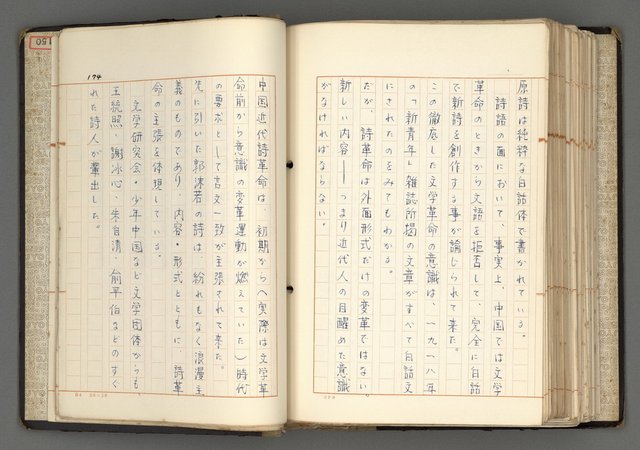 原詩は純粋な白話体で書かれている。
詩語の面において、事実上、中国では文学
革命のときから文語を拒否して、完全に白話
で新詩を創作する事が論じられて来た。
この徹底した文学革命の意識は、一九一八年
の「新青年」雑誌所掲の文章がすべて白話文
にされたのをみてもわかる。
だが、詩革命は外面形式だけの変革ではない。
新しい内容——つまり近代人の目醒めた意識
がなければならない。
174
中国近代詩革命は、初期から(実際は文学革
命前から意識の変革運動が燃えていた)時代
の要求として言文一致が主張されて来た。
先に引いた郭沫若の詩は、紛れもなく浪漫主
義のものであり、内容・形式とともに、詩革
命の主張を体現している。
文学研究会・少年中国など文学団体からも、
王統照・謝冰心・朱自清・俞平伯などのすぐ
れた詩人が輩出した。
150